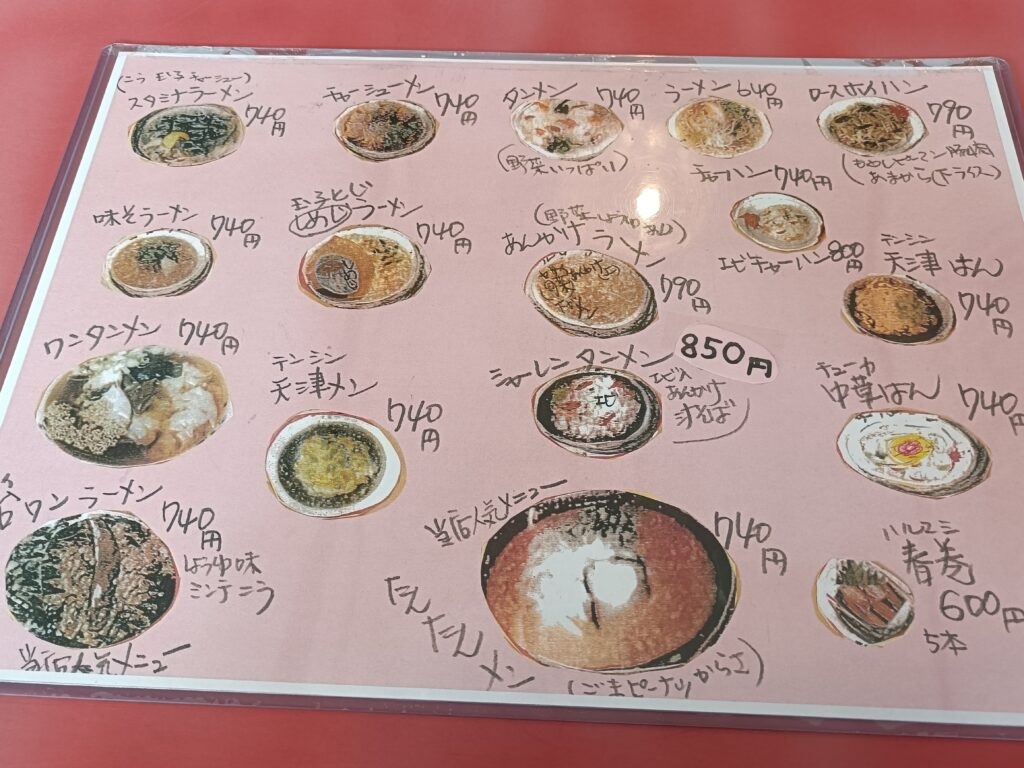 スタミナラーメン
740円
チャーシューメン
740円
タンメン 740円
(野菜いっぱい)
ラーメン 640円
ロースホイハン
790円
味そラーメン
740円
玉子とじ
ラーメン
740円
あんかけラーメン
790円
チャーハン 740円
エビチャーハン 800円
テンシン
天津はん
740円
ワンタンメン 740円
テンシン
天津メン
740円
シャーレンタンメン
850円
エビ入
あんかけ
汁そば
チューカ
中華はん
740円
ワンラーメン
740円
しょうゆ味
当店人気メニュー
当店人気メニュー
740円
たんたんメン
ハルマキ
春巻
600円
5本